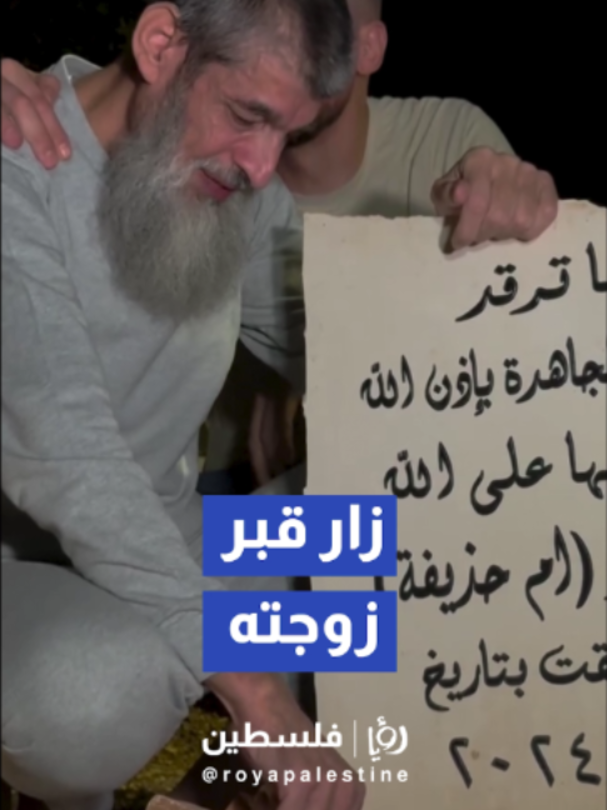 ا ترقد
جاهدة بإذن الله
ها على الله
(ام حذيفة)
قت بتاريخ
٢٠٢٤
زار قبر
زوجته
رؤيا | فلسطين
@royapalestine